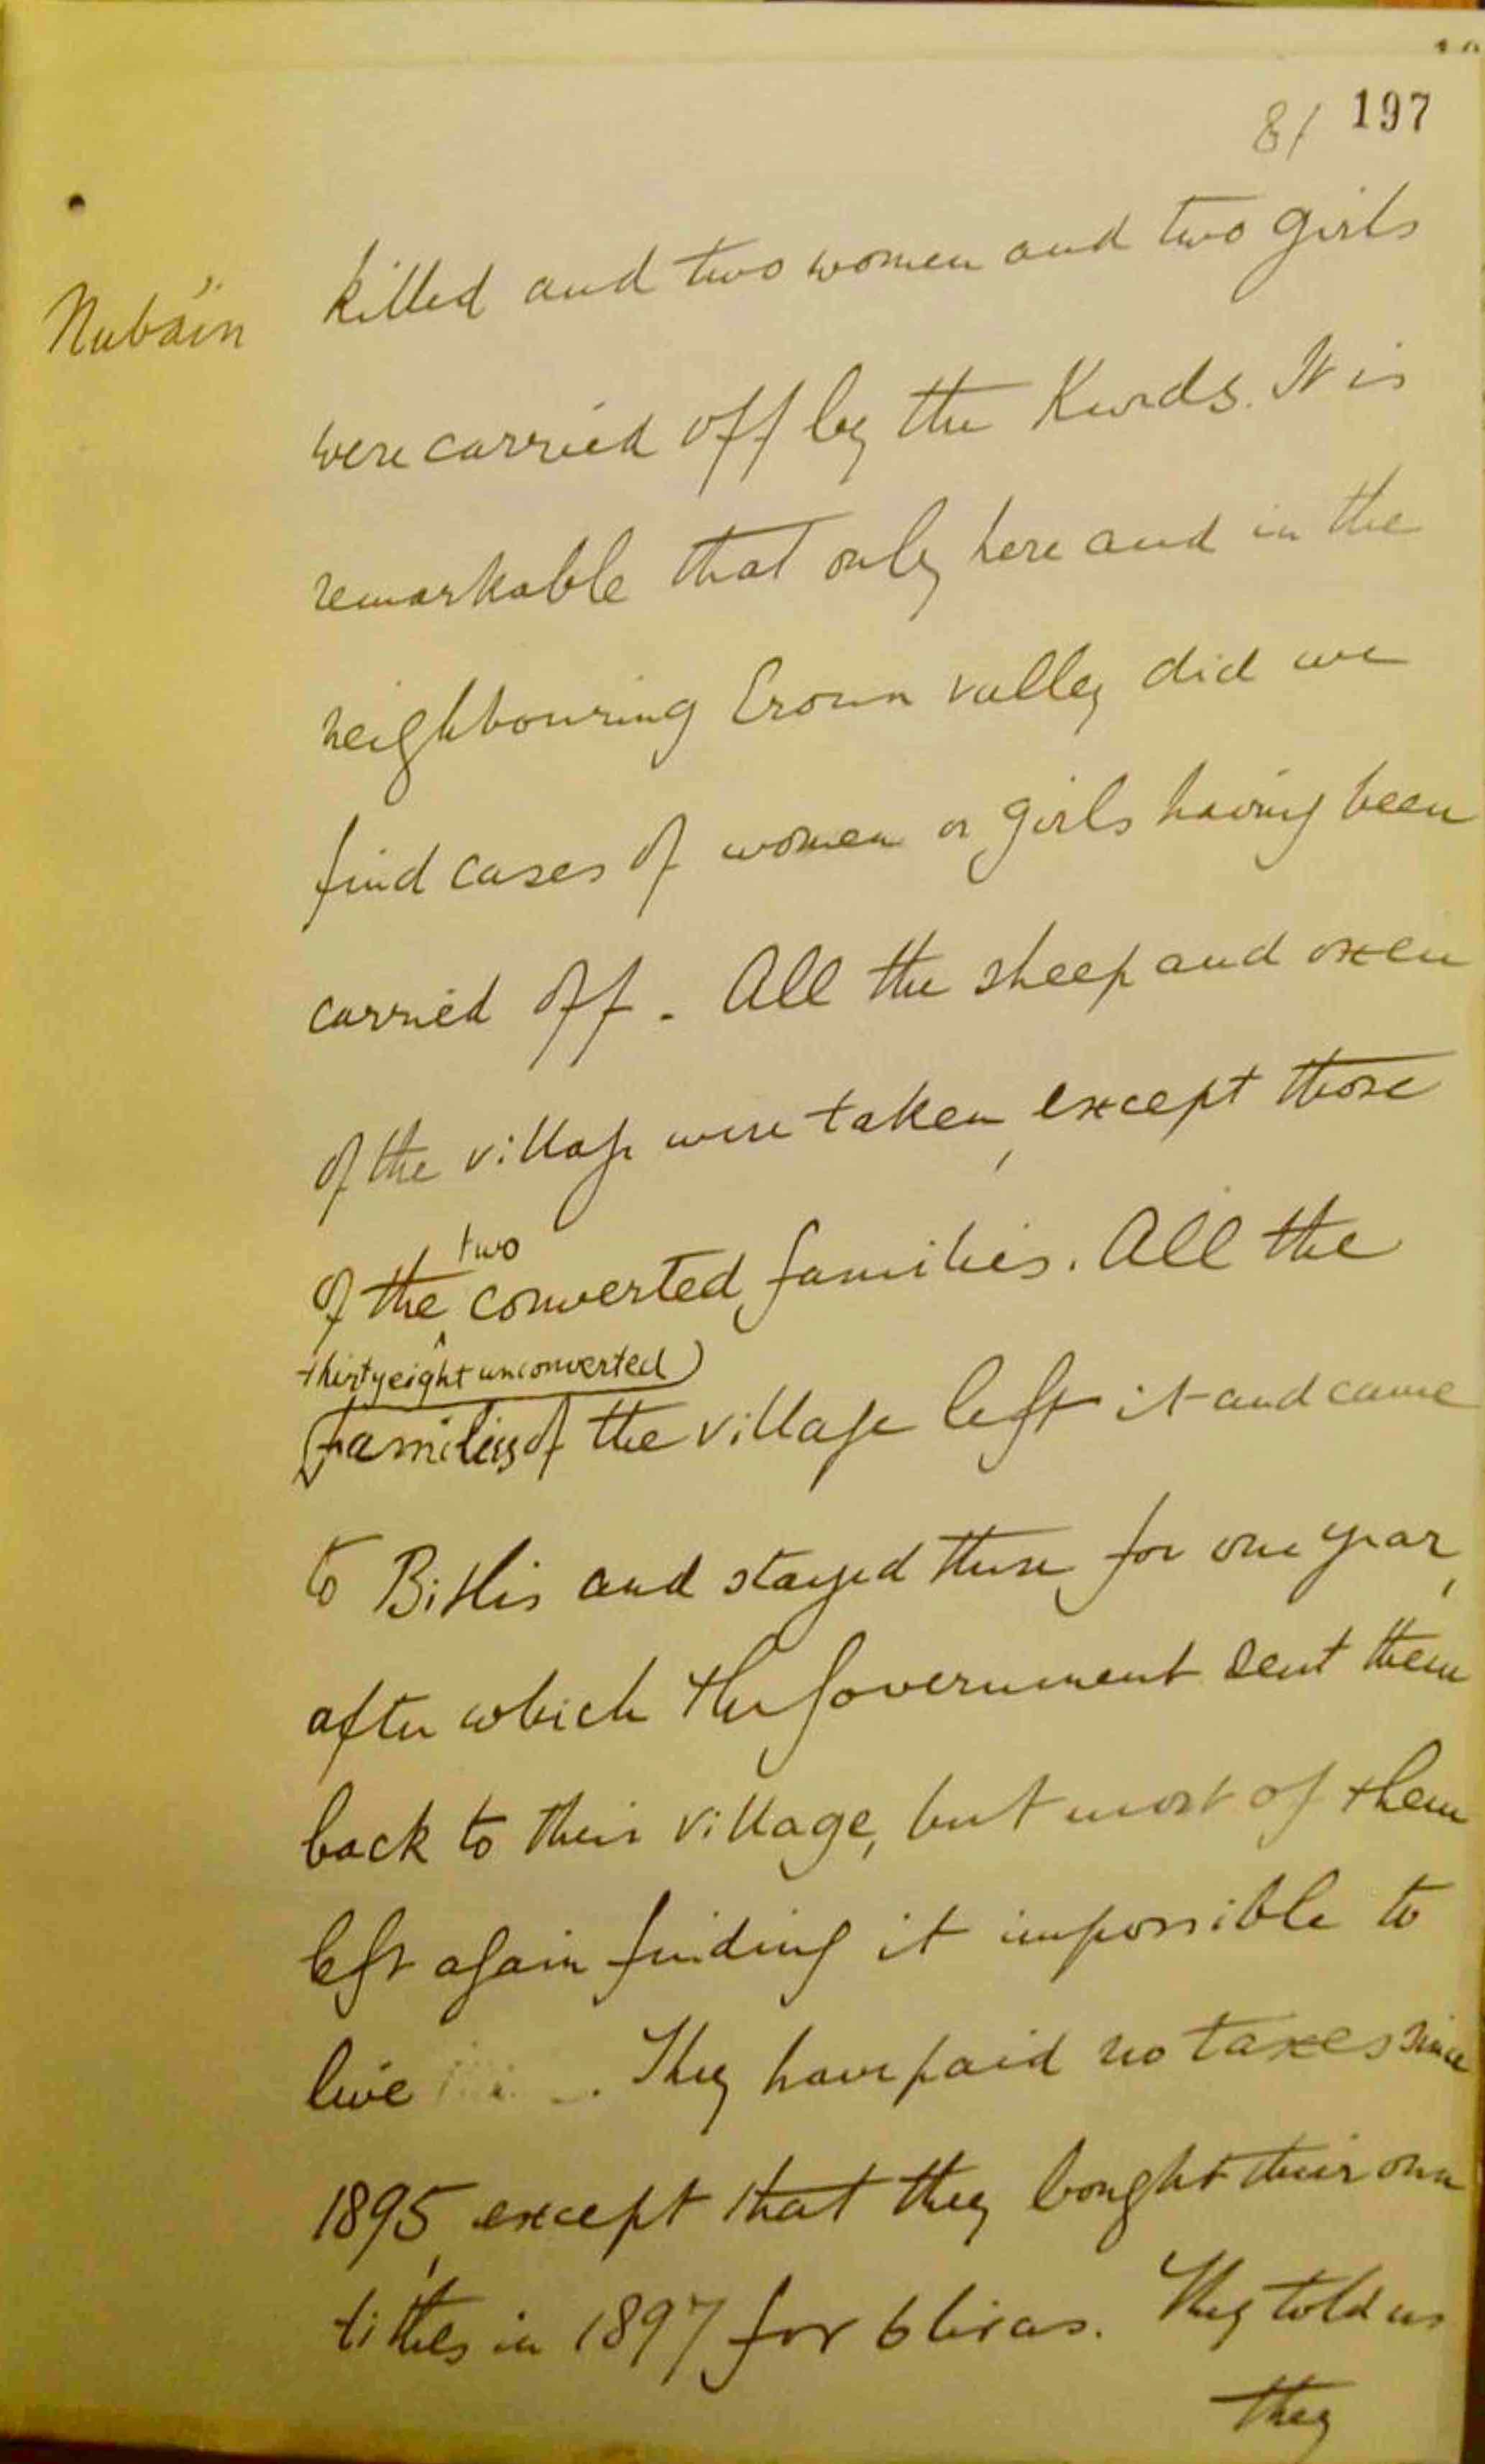 81 197
Nubäin
killed and two women and two girls
were carried off by the Kurds. It is
remarkable that only here and in the
neighbouring Eroun valley did we
find cases of women or girls having been
carried off. All the sheep and oxen
of the village were taken, except those
two
of the converted families. All the
thirtyeight unconverted
families of the village left it and came
to Bitlis and stayed there for one year,
after which the Government sent them
back to their village, but most of them
left again finding it impossible to
live . They have paid no taxes since
1895, except that they bought their own
tithes in 1897 for 6 liras. They told us
they